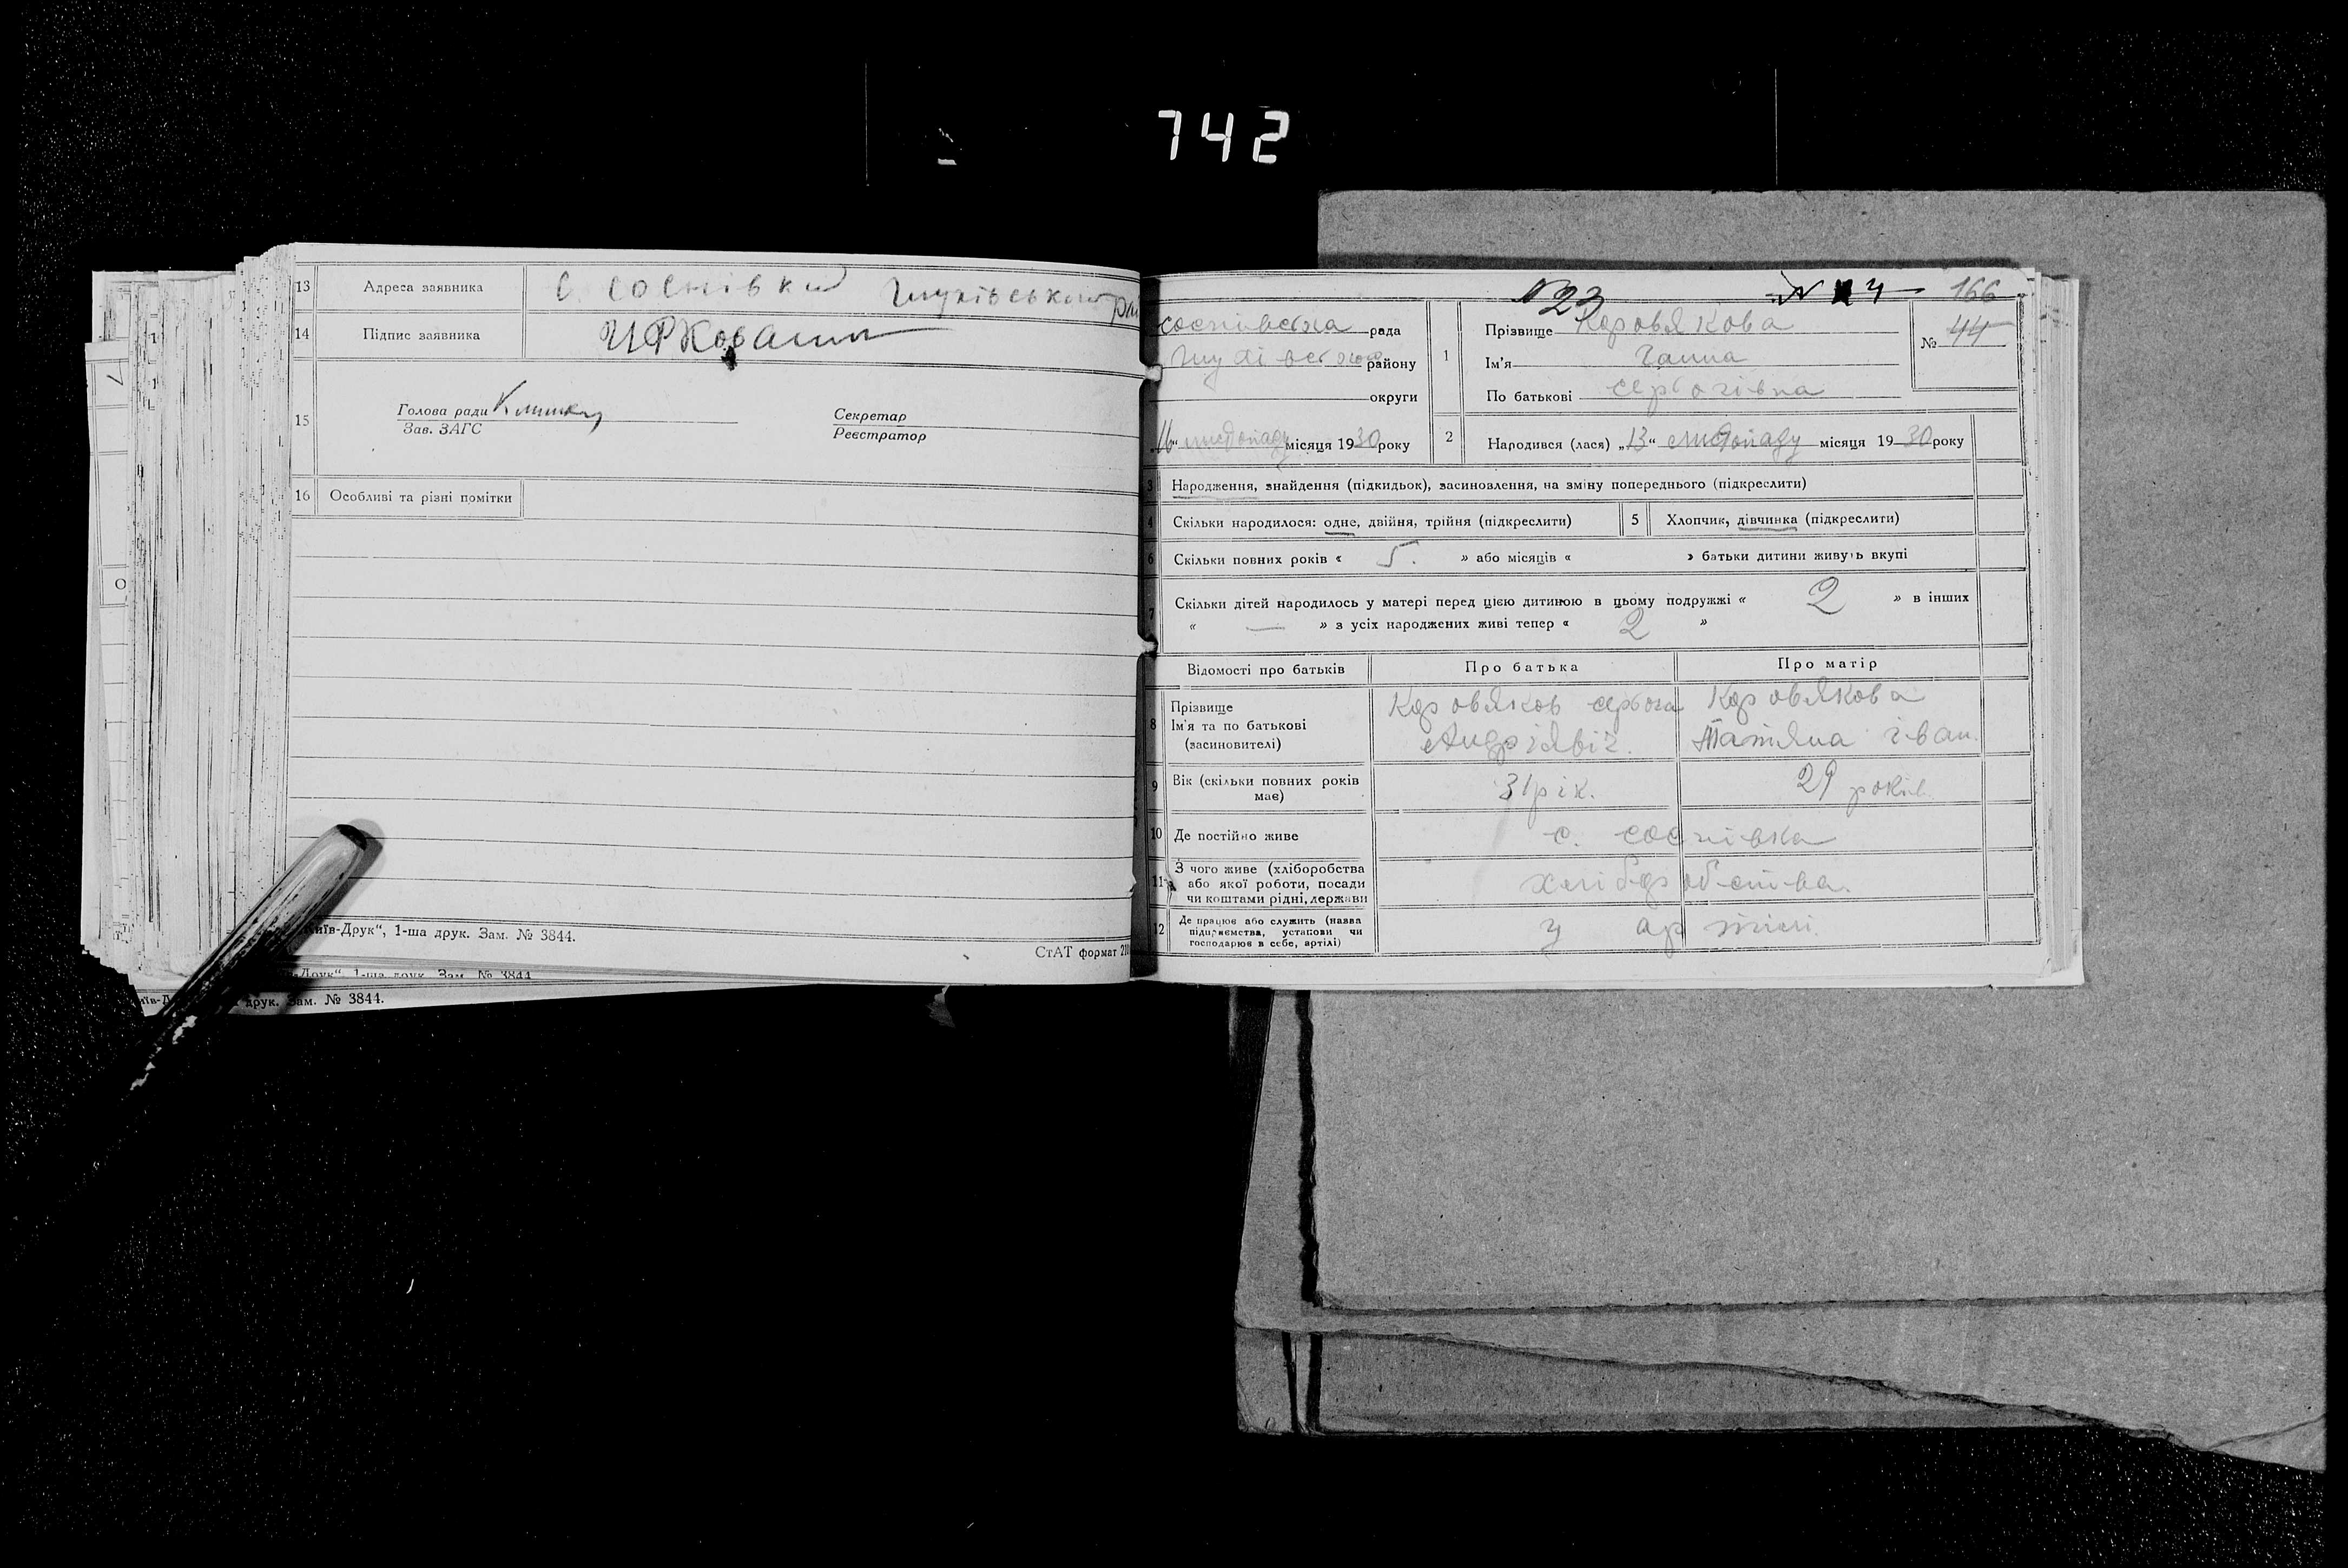 742
13 Адреса заявника с. соснівки
14 Підпис заявника
15 Голова ради
Зав. ЗАГС
Секретар
Реєстратор
16 Особливі та різні помітки
Київ-Друк“, 1-ша друк. Зам. № 3844.
СтАТ формат
1-ша друк. Зам. № 3844
друк. Зам. № 3844.
О
№23
166
соснівська рада
району
округи
„16“ листопаду місяця 1930 року
1 Прізвище Коровякова
Ім'я Ганна
По батькові Сергогівна
№ 44
2 Народився (лася) „13“ листопаду місяця 1930 року
3 Народження, знайдення (підкидьок), засиновлення, на зміну попереднього (підкреслити)
4 Скільки народилося: одне, двійня, трійня (підкреслити) 5 Хлопчик, дівчинка (підкреслити)
6 Скільки повних років « 5. » або місяців « » батьки дитини живуть вкупі
7 Скільки дітей народилось у матері перед цією дитиною в цьому подружжі « 2 » в інших
« — » з усіх народжених живі тепер « 2 »
Відомості про батьків Про батька Про матір
8 Прізвище
Ім'я та по батькові
(засиновителі)
Коровяков
Коровякова
Татіяна Іван.
9 Вік (скільки повних років
має) 31 рік. 29 років.
10 Де постійно живе с. соснівка
11 З чого живе (хліборобства
або якої роботи, посади
чи коштами рідні, держави
хліборобства.
12 Де працює або служить (назва
підприємства, установи чи
господарює в себе, артілі)
у артілі.